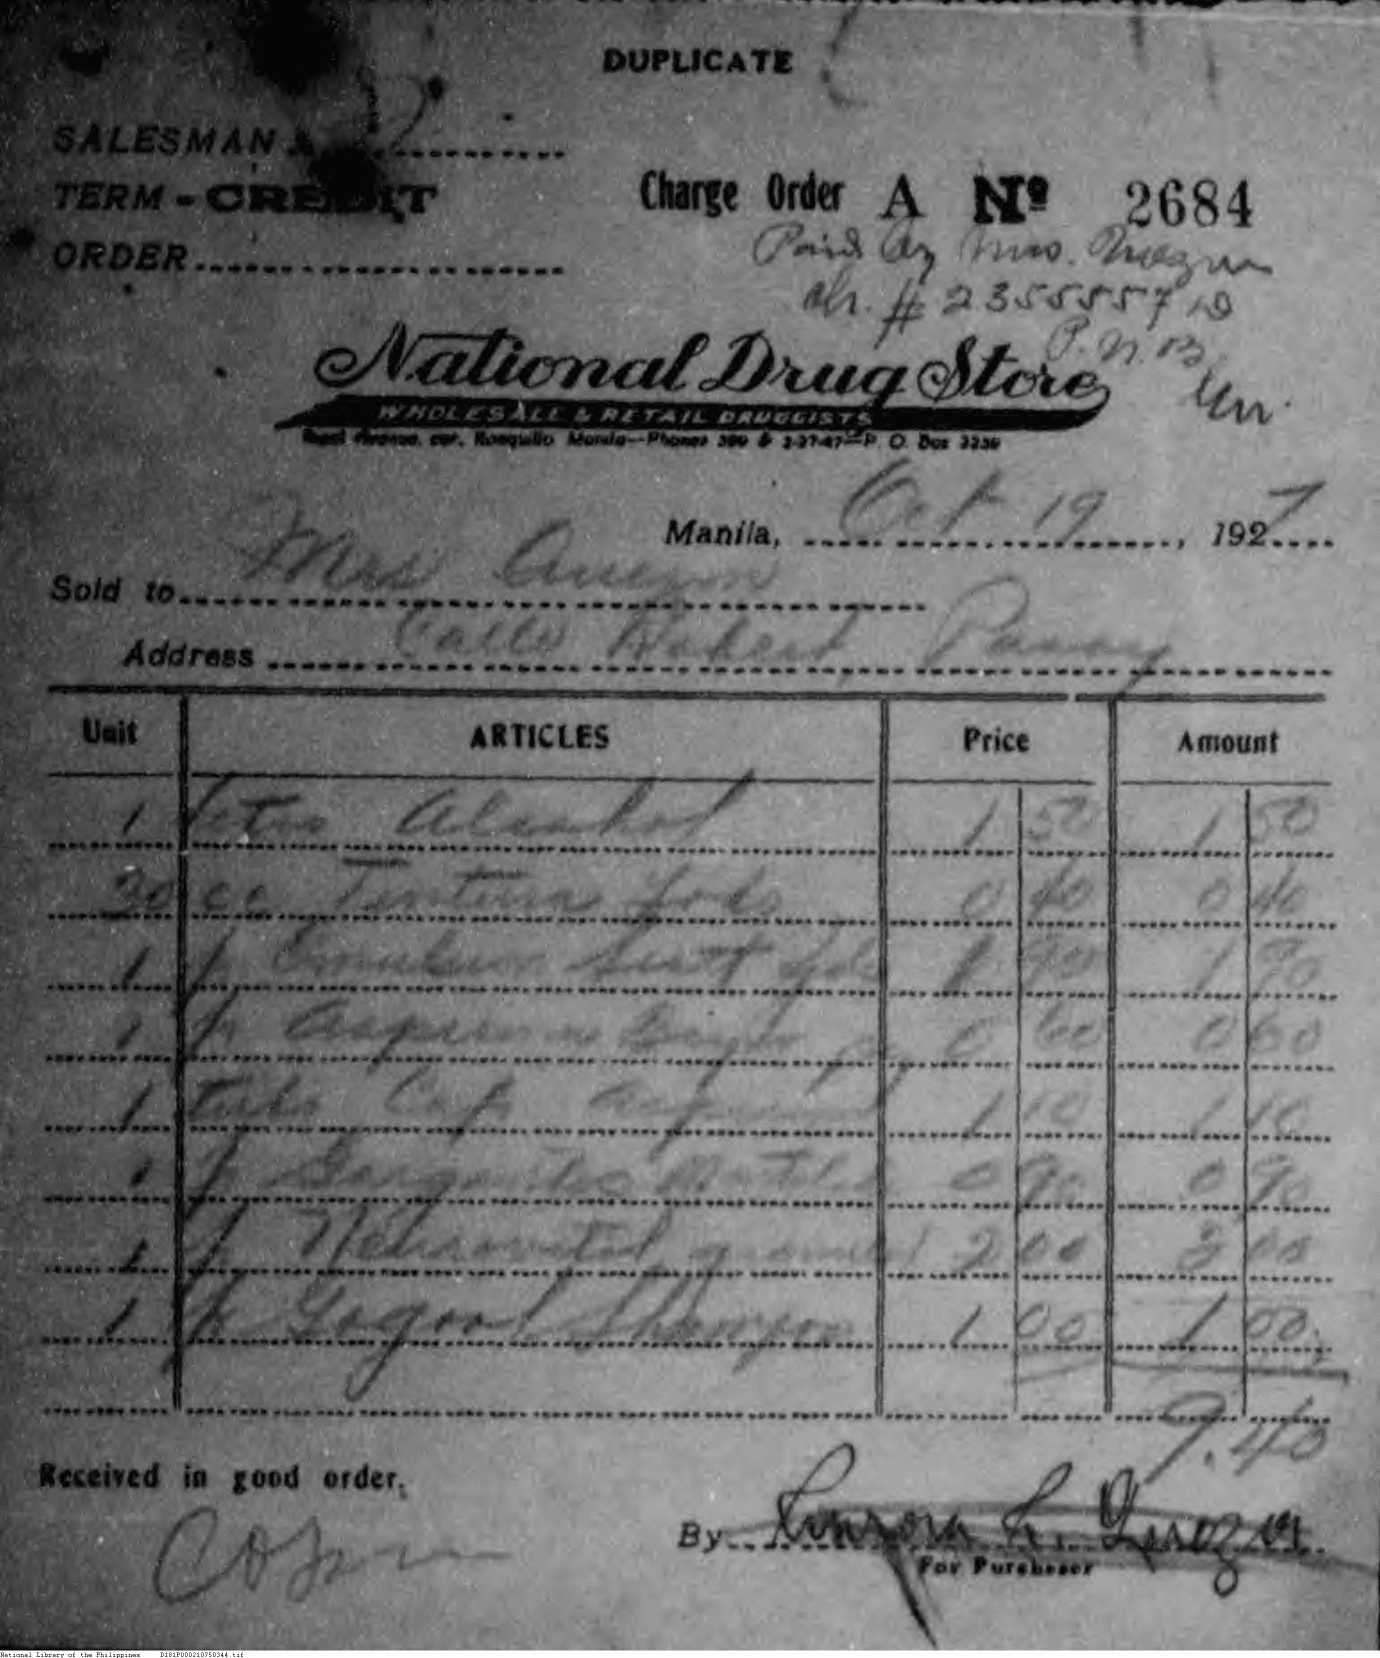 DUPLICATE
SALESMAN
TERM - CREDIT
Charge Order A Nº 2684
ORDER
Paid by Mrs. Quezon
Ch. # 2355557 D
P.N.B.
National Drug Store
WHOLESALE & RETAIL DRUGGISTS
Rizal Avenue, cor. Ronquillo Manila--Phones 390 & 2-27-47--P. O. Box 3239
Manila, Oct 19, 1927
Sold to Mrs Quezon
Address Calle Robert Pasay
Unit ARTICLES Price Amount
1 letro Alcohol 1 50 1 50
30 cc Tintura Yodo 0 40 0 40
1 f Emulsion Scott gde 1 90 1 90
1 f Aspirina Bayer 0 60 0 60
1 tubo Caf Aspirina 1 10 1 10
1 f 0 90 0 90
1 f 2 00 2 00
1 f Shampoo 1 00 1 00
9.40
Received in good order.
By Aurora A. Quezon
For Purchaser
National Library of the Philippines D181P000210750344.tif